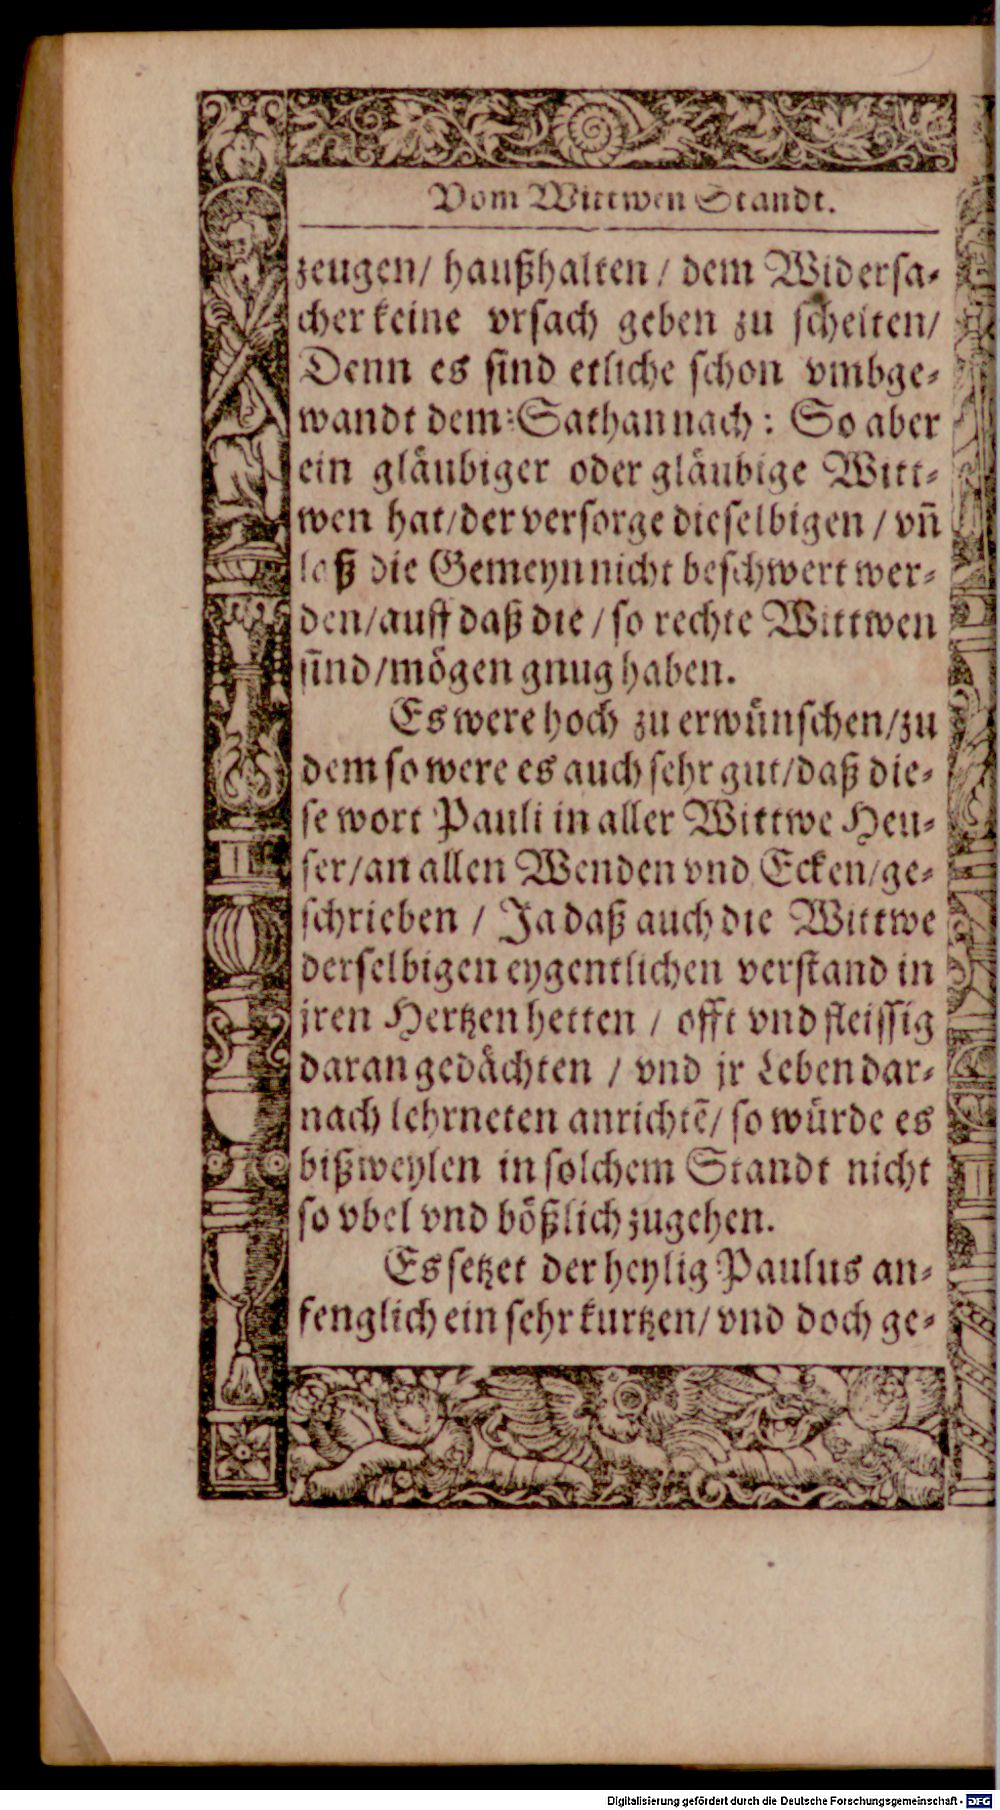 Vom Wittwen Standt.
zeugen/ haußhalten/ dem Widersa⸗
cher keine vrsach geben zu schelten/
Denn es sind etliche schon vmbge⸗
wandt dem Sathan nach: So aber
ein gläubiger oder gläubige Witt⸗
wen hat/ der versorge dieselbigen/ vñ
laß die Gemeyn nicht beschwert wer⸗
den/ auff daß die/ so rechte Wittwen
sind/ mögen gnug haben.
Es were hoch zu erwünschen/ zu
dem so were es auch sehr gut/ daß die⸗
se wort Pauli in aller Wittwe Heu⸗
ser/ an allen Wenden vnd Ecken/ ge⸗
schrieben/ Ja daß auch die Wittwe
derselbigen eygentlichen verstand in
jren Hertzen hetten/ offt vnd fleissig
daran gedächten/ vnd jr Leben dar⸗
nach lehrneten anrichtẽ/ so würde es
bißweylen in solchem Standt nicht
so vbel vnd bößlich zugehen.
Es setzet der heylig Paulus an⸗
fenglich ein sehr kurtzen/ vnd doch ge⸗
Digitalisierung gefördert durch die Deutsche Forschungsgemeinschaft - DFG